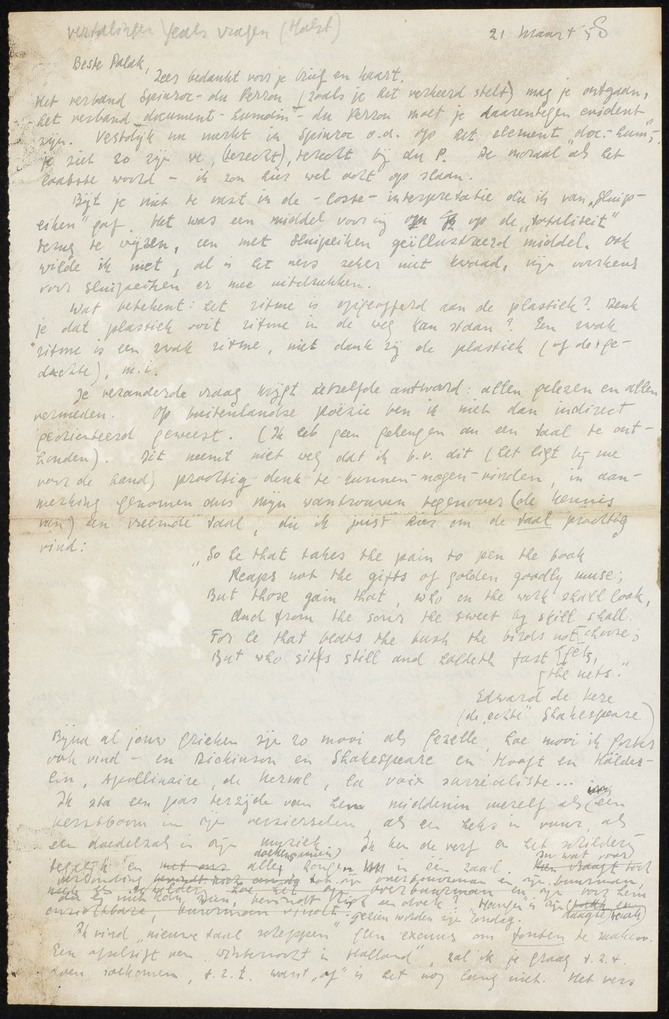 vertalingen Yeats vragen (Holst)
21 maart 50
Beste Polak,
Zeer bedankt voor je brief en kaart.
Het verband Spinroc - du Perron (zoals je het verkeerd stelt) mag je ontgaan,
het verband document-humain - du Perron moet je daarentegen evident
zijn. Vestdijk nu merkt in Spinroc o.a. op het element "doc-hum",
je ziet zo zijn we, (terecht), terecht bij du P. De moraal als het
laatste woord - ik zou hier wel ooit op slaan.
Bijt je niet te vast in de - interpretatie die ik van "Sluip-
eiken" gaf. Het was een middel voor mij om op de "totaliteit"
terug te wijzen, een met Sluipeiken geïllustreerd middel. Ook
wilde ik niet, al is het vers zeker niet kwaad, mijn voorkeur
voor Sluipeiken er mee uitdrukken.
Wat betekent: het ritme is opgeofferd aan de plastiek? Denk
je dat plastiek ooit ritme in de weg kan staan? Een zwak
ritme is een zwak ritme, niet dank zij de plastiek (of de ge-
dachte), m.i.
Je veranderde vraag krijgt hetzelfde antwoord: allen gelezen en allen
vermeden. Op buitenlandse poëzie ben ik niet dan indirect
georiënteerd geweest. (Ik heb geen geheugen om een taal te ont-
houden). Dit neemt niet weg dat ik b.v. dit (het ligt bij me
voor de hand) prachtig denk te kunnen-mogen-vinden, in aan-
merking genomen dus mijn wantrouwen tegenover (de kennis
van) een vreemde taal, die ik juist om de taal prachtig
vind:
"So he that takes the pain to pen the book
Reaps not the gifts of golden goodly muse;
But those gain that, who on the work shall look,
And from the sour the sweet by skill shall choose;
For he that beats the bush the birds not gets,
But who sits still and holdeth fast the nets."
Edward de Vere
(de "echte" Shakespeare)
Bijna al jouw Grieken zijn zo mooi als Gezelle, hoe mooi ik Gorter
ook vind - en Dickinson en Shakespeare en Hooft en Hölder-
lin, Apollinaire, de Nerval, la voix surréaliste...
Ik sta een pas terzijde van hem middenin mezelf als een
kerstboom in zijn versierselen als een heks in vuur als
een doedelzak in zijn muziek. Ik ken de verf en het schilderij
tegelijk en alle in een zaal.
gezien worden zijn
Ik vind "nieuwe taal scheppen" geen excuus om fouten te maken.
Een afschrift van "Wintervoort in Holland", zal ik je graag t.z.t.
doen toekomen, t.z.t. want "af" is het nog lang niet. Het vers